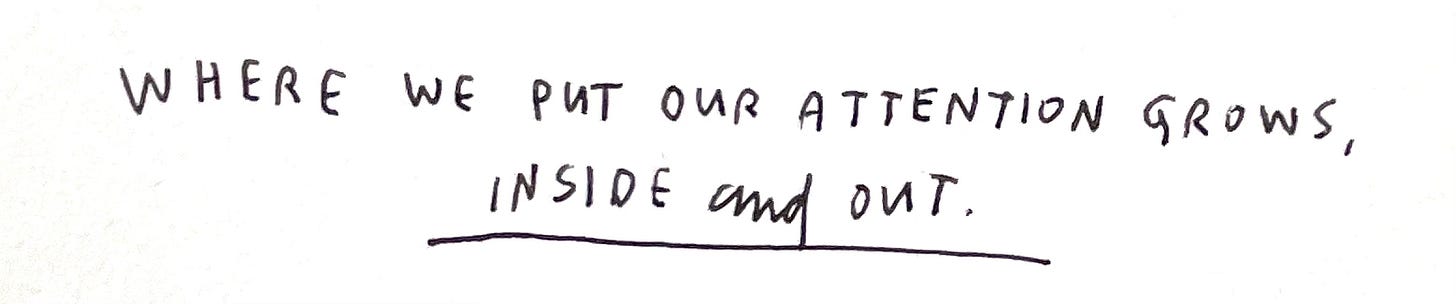 WHERE WE PUT OUR ATTENTION GROWS,
INSIDE and OUT.